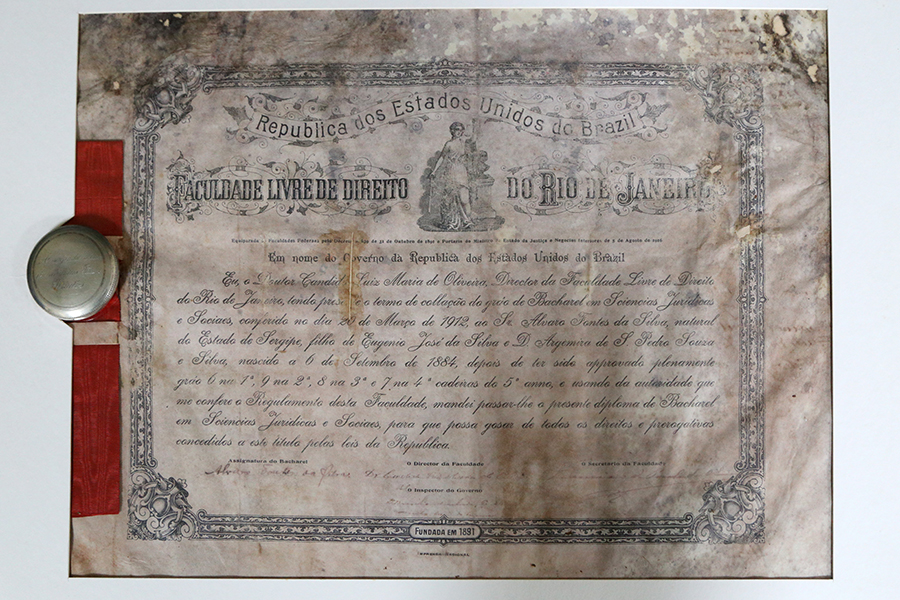 Republica dos Estados Unidos do Brazil
FACULDADE LIVRE DE DIREITO DO RIO DE JANEIRO
de 31 de Outubro de 1891 e Portaria do Ministro de Estado da Justiça e Negocios Interiores de 5 de Agosto de
Em nome do Governo da Republica dos Estados Unidos do Brazil
Eu, o Doutor Candido Luiz Maria de Oliveira, Director da Faculdade Livre de Direito
do Rio de Janeiro, tendo presente o termo de collação do gráo de Bacharel em Sciencias Juridicas
e Sociaes, conferido no dia 20 de Março de 1912, ao Sr. Alvaro Fontes da Silva, natural
do Estado de Sergipe, filho de Eugenio José da Silva e D. Argemira de S. Pedro Souza
e Silva, nascido a 6 de Setembro de 1884, depois de ter sido approvado plenamente
gráo 6 na 1ª, 9 na 2ª, 8 na 3ª e 7 na 4ª cadeiras do 5º anno, e usando da autoridade que
me confere o Regulamento desta Faculdade, mandei passar-lhe o presente diploma de Bacharel
em Sciencias Juridicas e Sociaes, para que possa gosar de todos os direitos e prerogativas
concedidos a este titulo pelas leis da Republica.
Assignatura do Bacharel O Director da Faculdade O Secretario da Faculdade
Alvaro Fontes da Silva
O Inspector do Governo
FUNDADA EM 1891